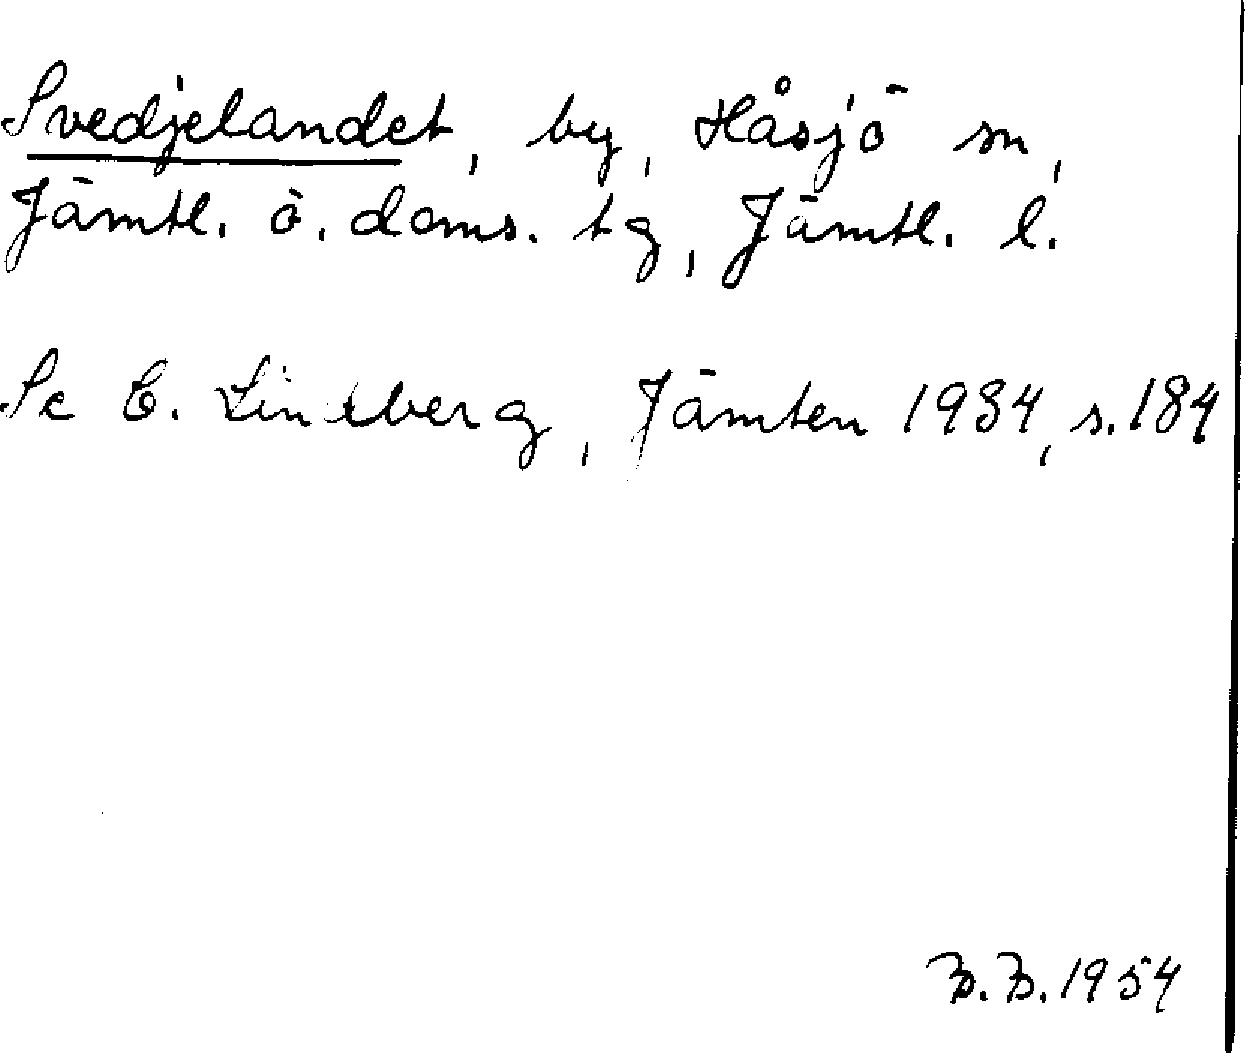 Svedjelandet, by, Håsjö sn,
Jämtl. ö. doms. tg, Jämtl. l.
Se E. Lindberg, Jämten 1934, s. 184
B.B. 1954